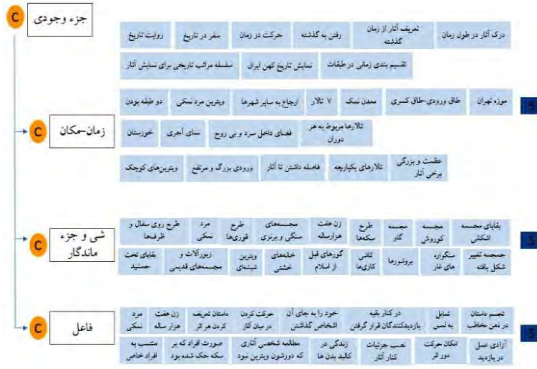 C جزء وجودی
درک آثار در طول زمان
تعریف آثار از زمان گذشته
رفتن به گذشته
حرکت در زمان
سفر در تاریخ
روایت تاریخ
تقسیم بندی زمانی در طبقات
نمایش تاریخ کهن ایران
سلسله مراتب تاریخی برای نمایش آثار
C زمان-مکان
موزه تهران
طاق ورودی-طاق کسری
معدن نمک
۷ تالار
ارجاع به سایر شهرها
ویترین مرد نمکی
دو طبقه بودن
تالارها مربوط به هر دوران
فضای داخل سرد و بی روح
نمای آجری
خوزستان
عظمت و بزرگی برخی آثار
تالارهای یکپارچه
فاصله داشتن تا آثار
ورودی بزرگ و مرتفع
ویترین‌های کوچک
C شی و جزء ماندگار
بقایای مجسمه اشکانی
مجسمه کوروش
مجسمه گاو
طرح سکه‌ها
زن هفت هزارساله
مجسمه‌های سنگی و برنزی
طرح قوری‌ها
مرد نمکی
طرح روی سفال و ظرف‌ها
جمجمه تغییر شکل یافته
سنگواره های غار
بروشورها
کاشی کاری‌ها
گورهای قبل از اسلام
خانه‌های خشتی
ویترین شیشه‌ای
زیورآلات و مجسمه‌های قدیمی
بقایای تخت جمشید
C فاعل
تجسم داستان در ذهن مخاطب
تمایل به لمس
در کنار بقیه بازدیدکنندگان قرار گرفتن
خود را به جای آن اشخاص گذاشتن
حرکت کردن در میان آثار
داستان تعریف کردن هر اثر
زن هفت هزار ساله
مرد نمکی
آزادی عمل در بازدید
امکان حرکت دور اثر
نصب جزئیات کنار آثار
زندگی در کالبد بدن ها
مطالعه شخصی آثاری که دورشون ویترین نبود
صورت افراد که بر سکه حک شده بود
منتسب به افراد خاص